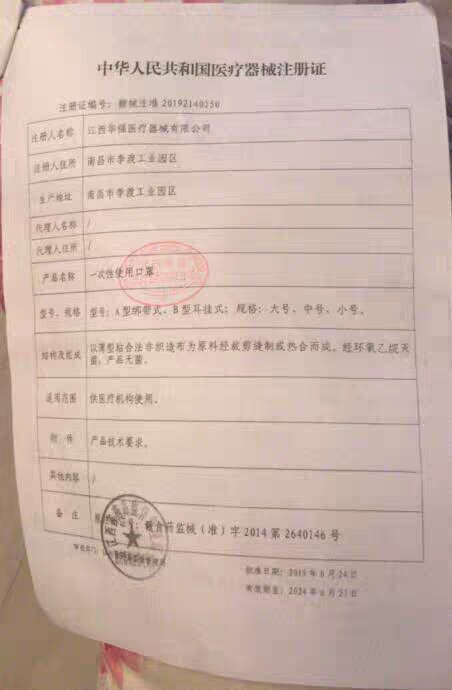 中华人民共和国医疗器械注册证
注册证编号：赣械注准 20192140150
注册人名称 江西华强医疗器械有限公司
注册人住所 南昌市李渡工业园区
生产地址 南昌市李渡工业园区
代理人名称 /
代理人住所 /
产品名称 一次性使用口罩
型号、规格 型号：A型绑带式、B型耳挂式；规格：大号、中号、小号。
结构及组成 以薄型粘合法非织造布为原料经裁剪缝制或热合而成。经环氧乙烷灭
菌，产品无菌。
适用范围 供医疗机构使用。
附件 产品技术要求。
其他内容 /
备注 赣食药监械（准）字 2014 第 2640146 号
审批部门：
批准日期：2019 年 6 月 24 日
有效期至：2024 年 6 月 23 日